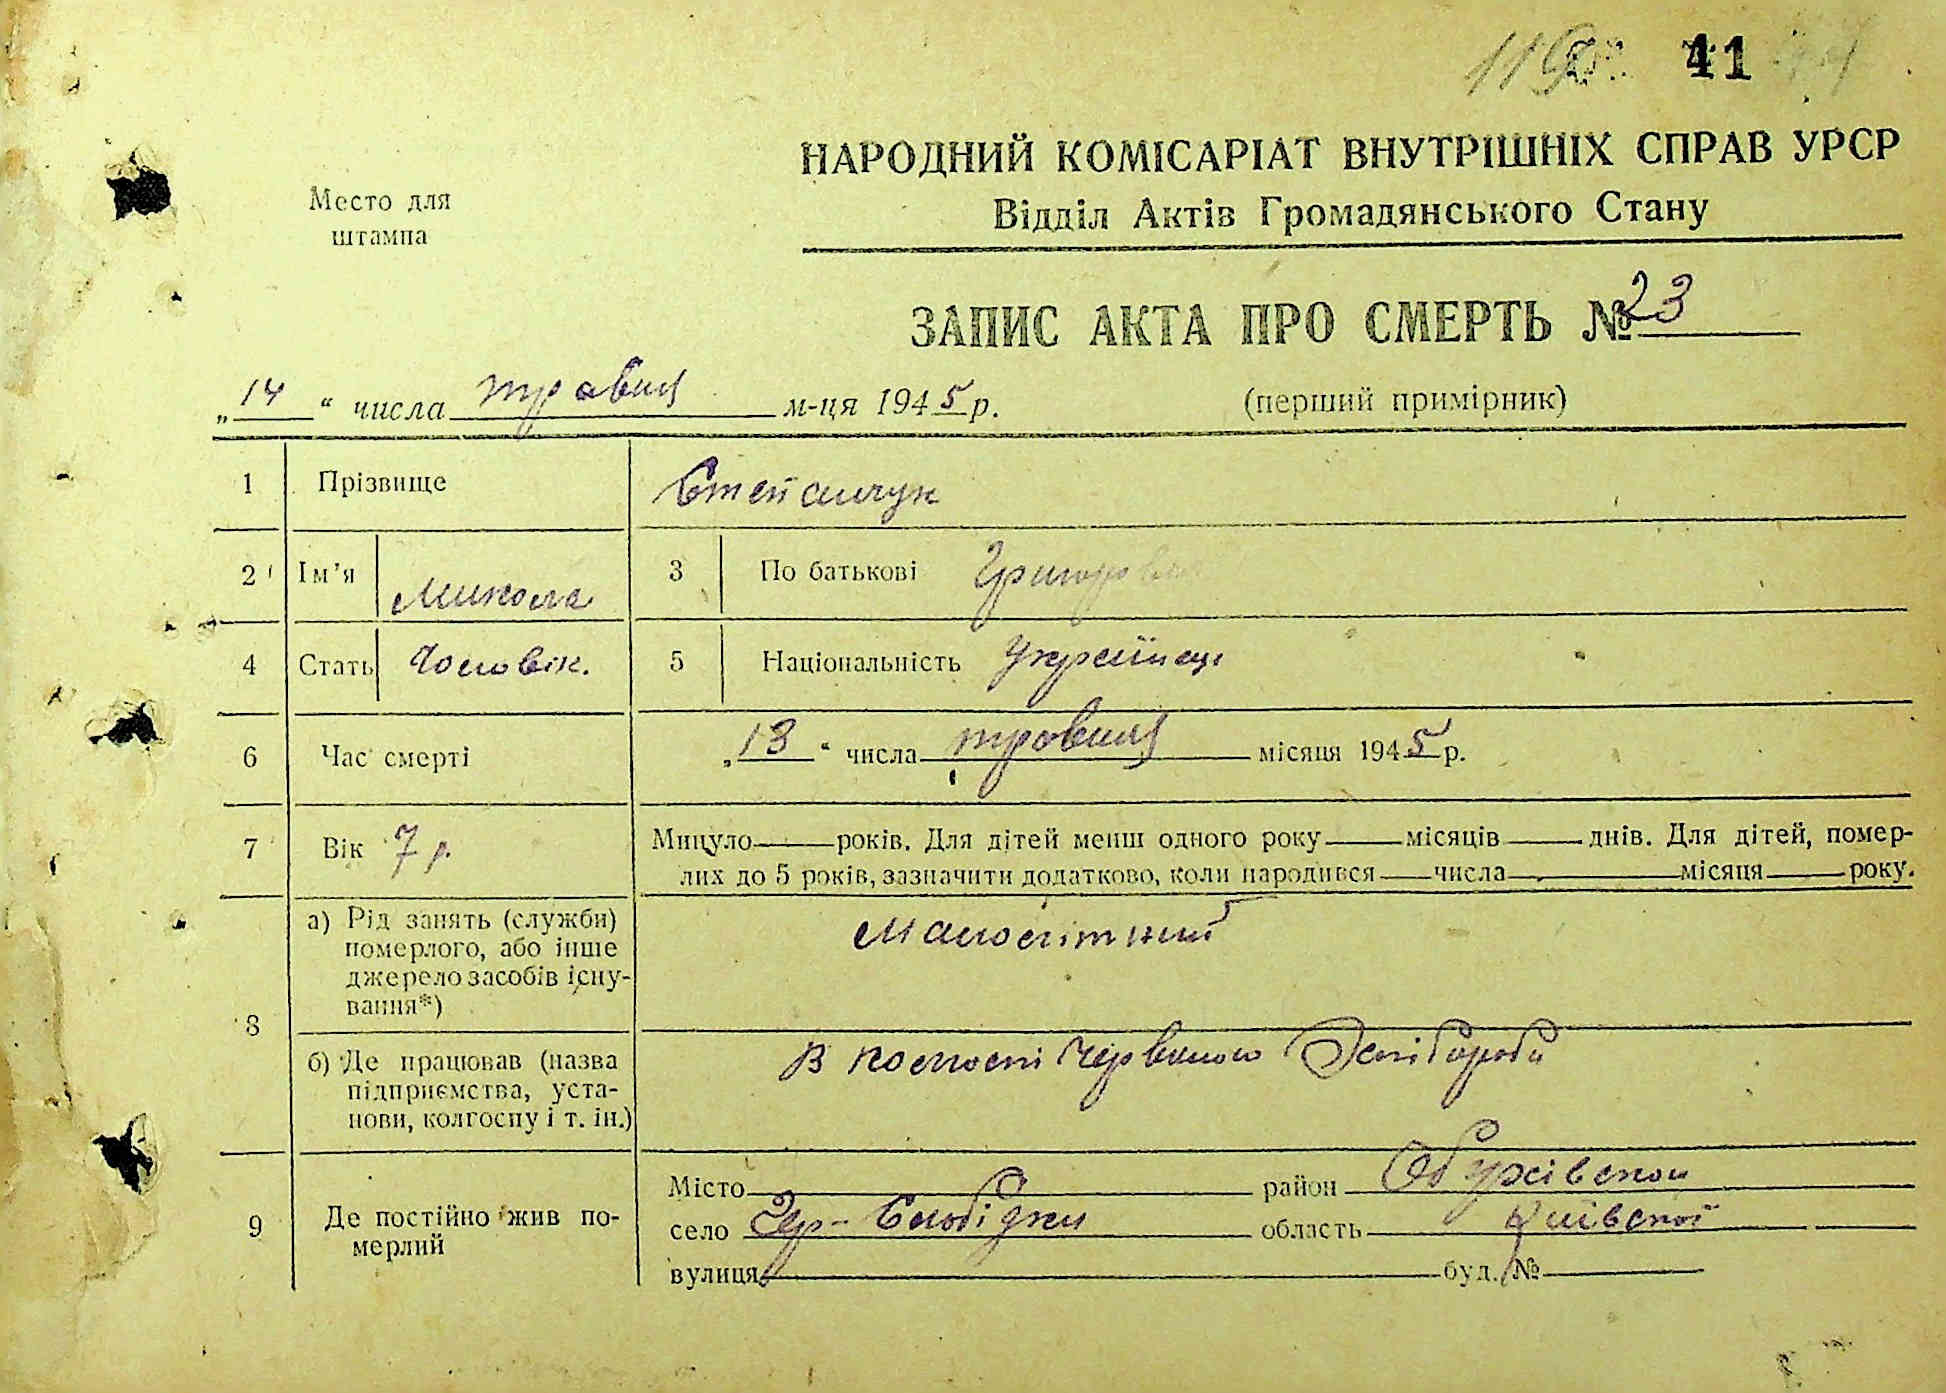 41
НАРОДНИЙ КОМІСАРІАТ ВНУТРІШНІХ СПРАВ УРСР
Место для штампа
Відділ Актів Громадянського Стану
ЗАПИС АКТА ПРО СМЕРТЬ № 23
„14“ числа травня м-ця 1945 р. (перший примірник)
1 Прізвище Степанчук
2 Ім'я Микола 3 По батькові Григорович
4 Стать Чоловік. 5 Національність Українец
6 Час смерті „13“ числа травня місяця 1945 р.
7 Вік 7 р. Минуло років. Для дітей менш одного року місяців днів. Для дітей, помер-
лих до 5 років, зазначити додатково, коли народився числа місяця року.
8 а) Рід занять (служби) Малолітний
померлого, або інше
джерело засобів існу-
вання*)
б) Де працював (назва В колгоспі
підприємства, уста-
нови, колгоспу і т. ін.)
9 Де постійно жив по-
мерлий
Місто район Обухівской
село Чер-Слобідки область Київскої
вулиця буд. №